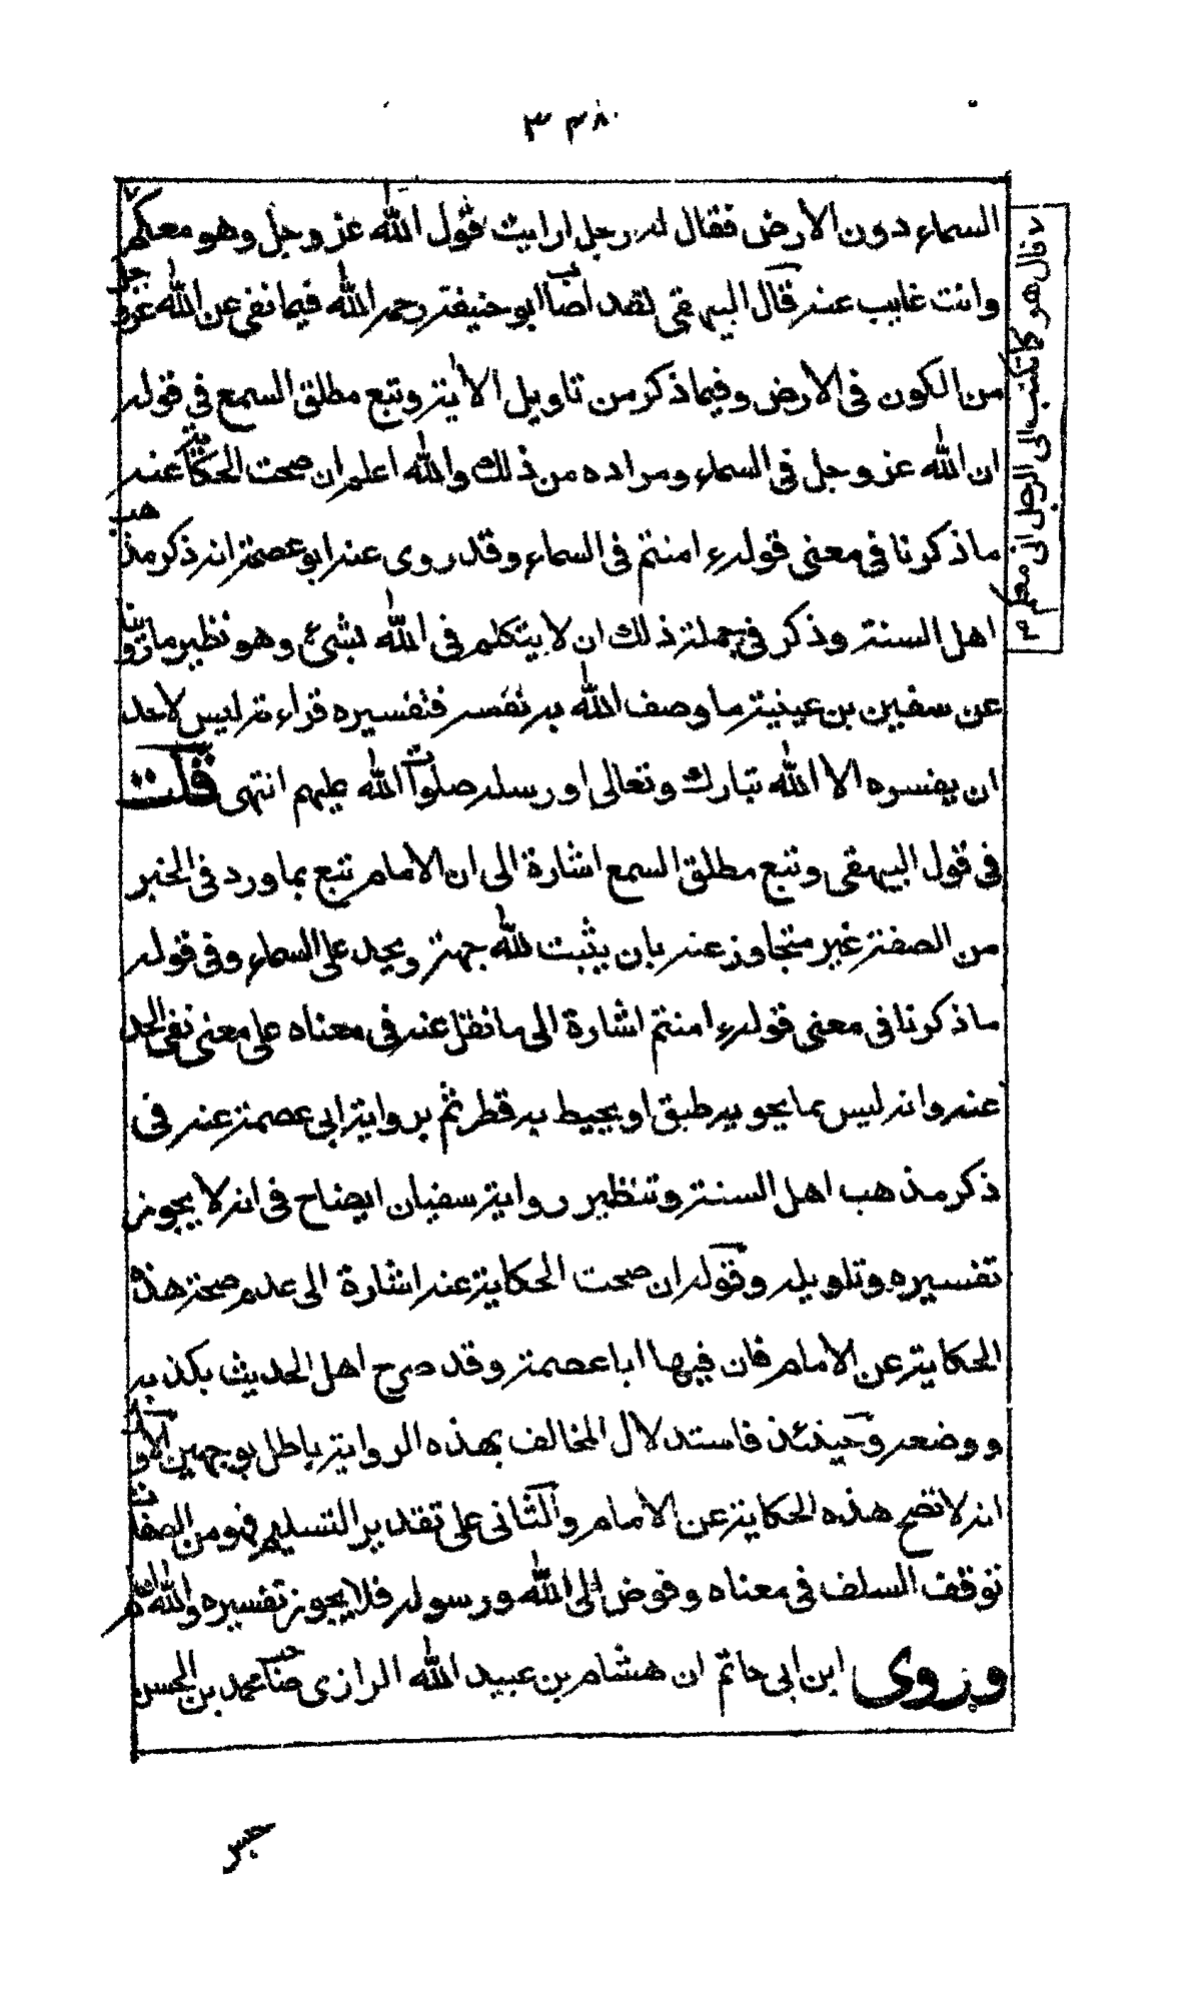 ٣٣٨
السماء دون الارض فقال له رجل ارايت قول الله عز وجل وهو معكم
وانت غايب عنه قال البيهقى لقد اصاب ابو حنيفة رحمه الله فيما نفى عن الله عز وجل
من الكون فى الارض وفيما ذكر من تاويل الاية وتبع مطلق السمع فى قوله
ان الله عز وجل فى السماء ومراده من ذلك والله اعلم ان صحت الحكاية عنه
ما ذكرنا فى معنى قوله ءامنتم فى السماء وقد روى عنه ابو عصمة انه ذكر مذهب
اهل السنة وذكر فى جملة ذلك ان لا يتكلم فى الله بشئ وهو نظير ما روينا
عن سفين بن عيينة ما وصف الله به نفسه فتفسيره قراءته ليس لاحد
ان يفسره الا الله تبارك وتعالى او رسله صلوات الله عليهم انتهى قلت
فى قول البيهقى وتبع مطلق السمع اشارة الى ان الامام تبع بما ورد فى الخبر
من الصفة غير متجاوز عنه بان يثبت لله جهة ويحد على السماء وفى قوله
ما ذكرنا فى معنى قوله ءامنتم اشارة الى ما نقل عنه فى معناه على معنى نفى الحد
عنه وانه ليس مما يحويه طبق او يحيط به قطر ثم برواية ابى عصمة عنه فى
ذكر مذهب اهل السنة وتنظير رواية سفيان ايضاح فى انه لا يجوز
تفسيره وتاويله وقوله ان صحت الحكاية عنه اشارة الى عدم صحة هذه
الحكاية عن الامام فان فيها ابا عصمة وقد صرح اهل الحديث بكذبه
ووضعه وحينئذ فاستدلال المخالف بهذه الرواية باطل بوجهين الاول
انه لا تصح هذه الحكاية عن الامام والثانى على تقدير التسليم فهو من الصفات
توقف السلف فى معناه وفوض الى الله ورسوله فلا يجوز تفسيره والله اعلم
وروى ابن ابى حاتم ان هشام بن عبيد الله الرازى صاحب محمد بن الحسن
حبس
د قال هو كما تكتب الى الرجل انى معك